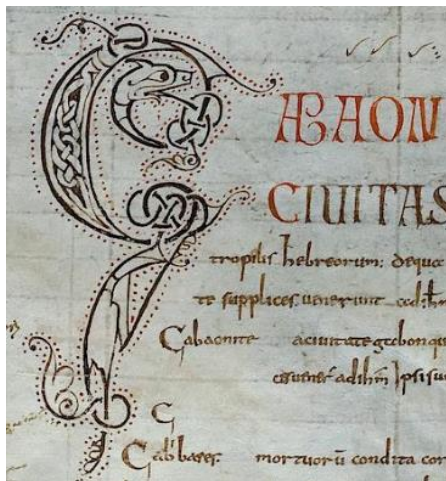 GABAON
CIUITAS
tropilis hebreorum: dequa
te supplices uenerunt
Gabaonite aciuitate gebonqu
adihm Ipsisu
G
Gabbares mortuorū condita cor